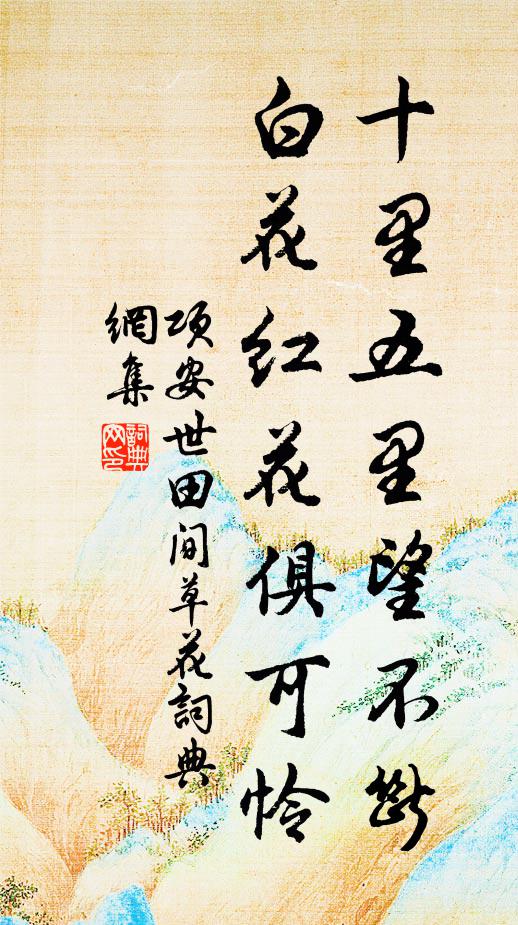 十里五里望不斷
白花红花俱可怜
项安世田间草花詞典
網集
詞典
网印